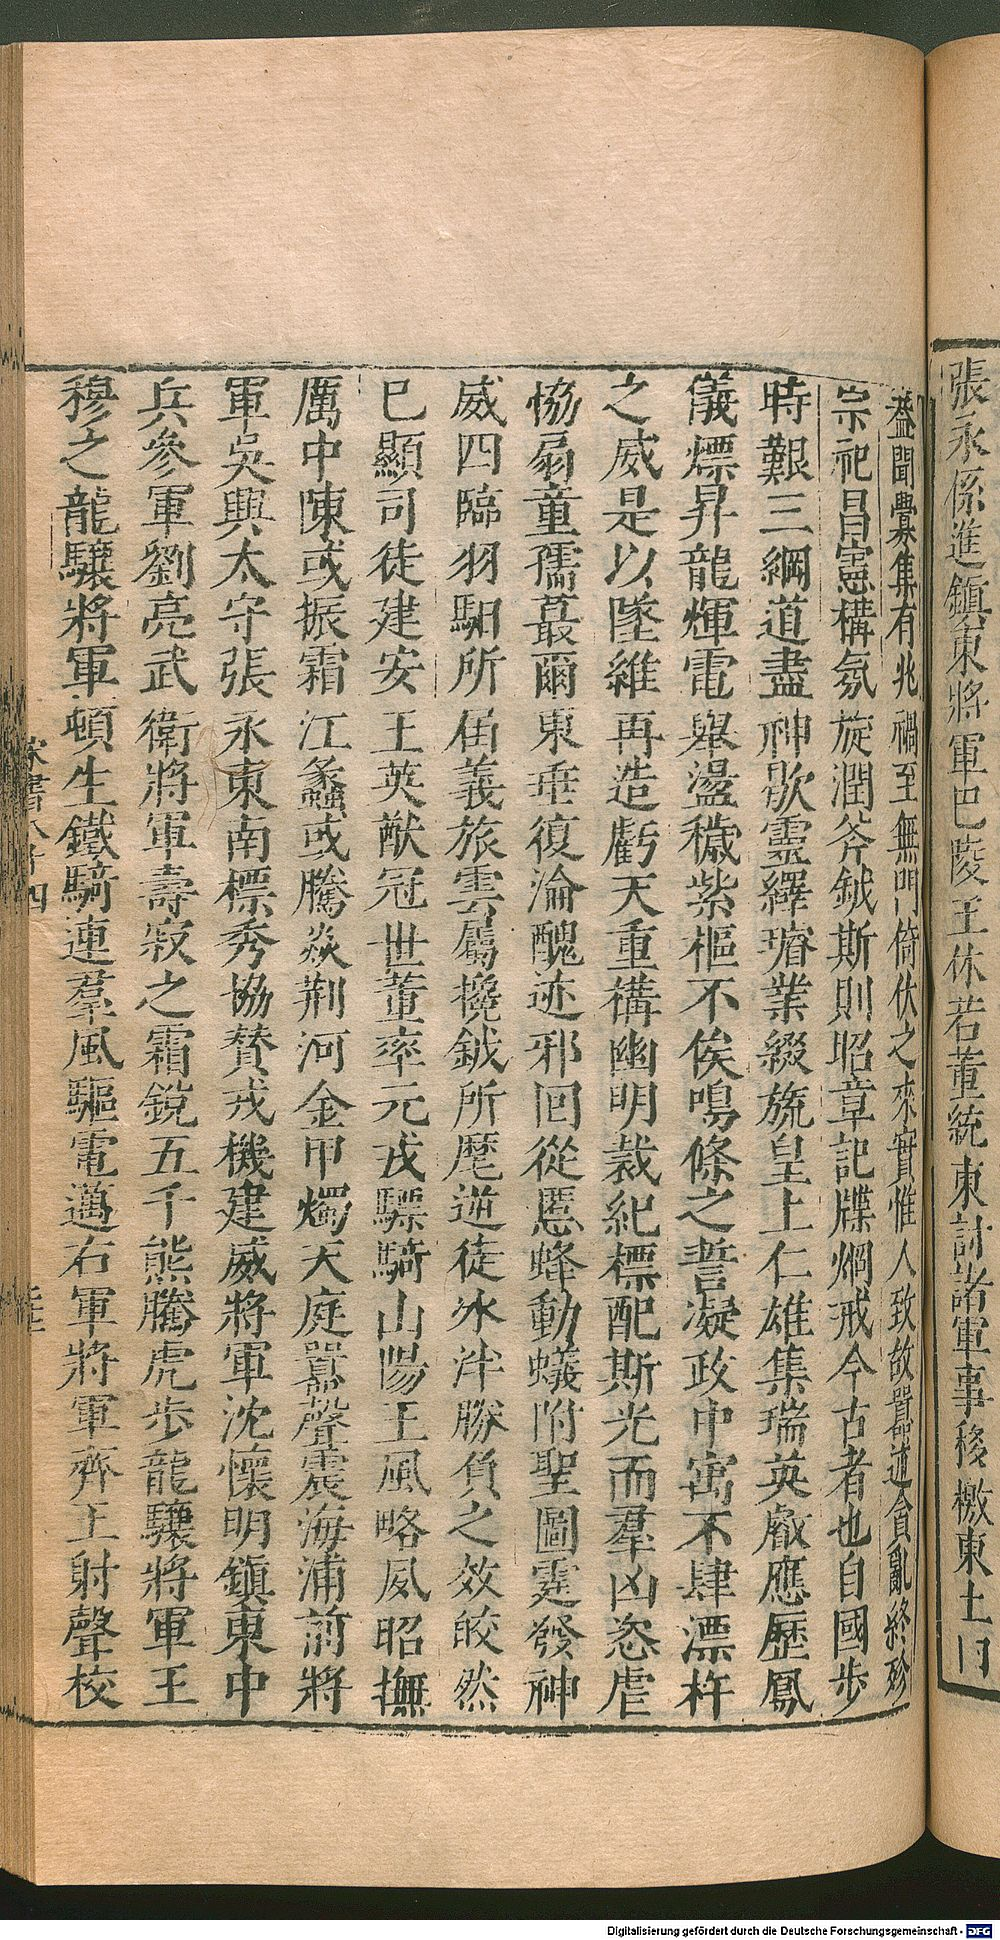 張永係進鎮東將軍巴陵王休若董統東討諸軍事移檄東土曰
蓋聞釁集有兆禍至無門倚伏之來實惟人致故囂述貪亂終殄
宗祀昌憲構氛旋潤斧鉞斯則昭章記牒炯戒今古者也自國步
時艱三綱道盡神歇靈繹璿業綴旒皇上仁雄集瑞英叡應歷鳳
儀熛昇龍煇電舉盪穢紫樞不俟鳴條之誓凝政中㝢不肆漂杵
之威是以墜維再造虧天重構幽明裁紀標配斯光而羣凶恣虐
協扇童孺蕞爾東垂復淪醜迹邪回從慝蜂動蟻附聖圖霆發神
威四臨羽馹所屆義旅雲屬攙鉞所麾逆徒冰泮勝負之效皎然
已顯司徒建安王英猷冠世董率元戎驃騎山陽王風略夙昭撫
厲中陳或振霜江蠡或騰焱荆河金甲燭天庭囂聲震海浦前將
軍吳興太守張永東南標秀協贊戎機建威將軍沈懷明鎮東中
兵參軍劉亮武衛將軍壽寂之霜鋭五千熊騰虎步龍驤將軍王
穆之龍驤將軍頓生鐵騎連羣風驅電邁右軍將軍齊王射聲校
宋書八十四